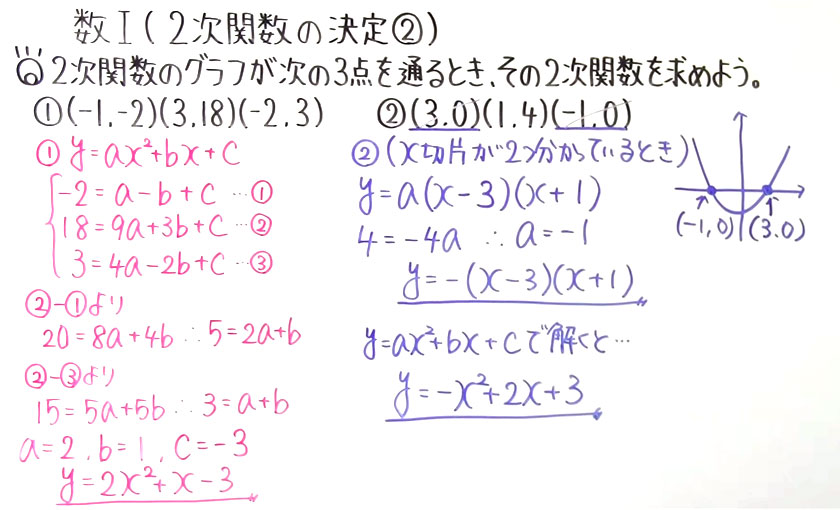 数Ⅰ(2次関数の決定②)
◎2次関数のグラフが次の3点を通るとき、その2次関数を求めよう。
①(-1.-2)(3.18)(-2.3)
②(3.0)(1.4)(-1.0)
① y=ax²+bx+c
-2=a-b+c …①
18=9a+3b+c …②
3=4a-2b+c …③
②-①より
20=8a+4b ∴5=2a+b
②-③より
15=5a+5b ∴3=a+b
a=2.b=1.c=-3
y=2x²+x-3
②(x切片が2つ分かっているとき)
y=a(x-3)(x+1)
4=-4a ∴a=-1
y=-(x-3)(x+1)
y=ax²+bx+cで解くと…
y=-x²+2x+3
(-1,0) (3.0)